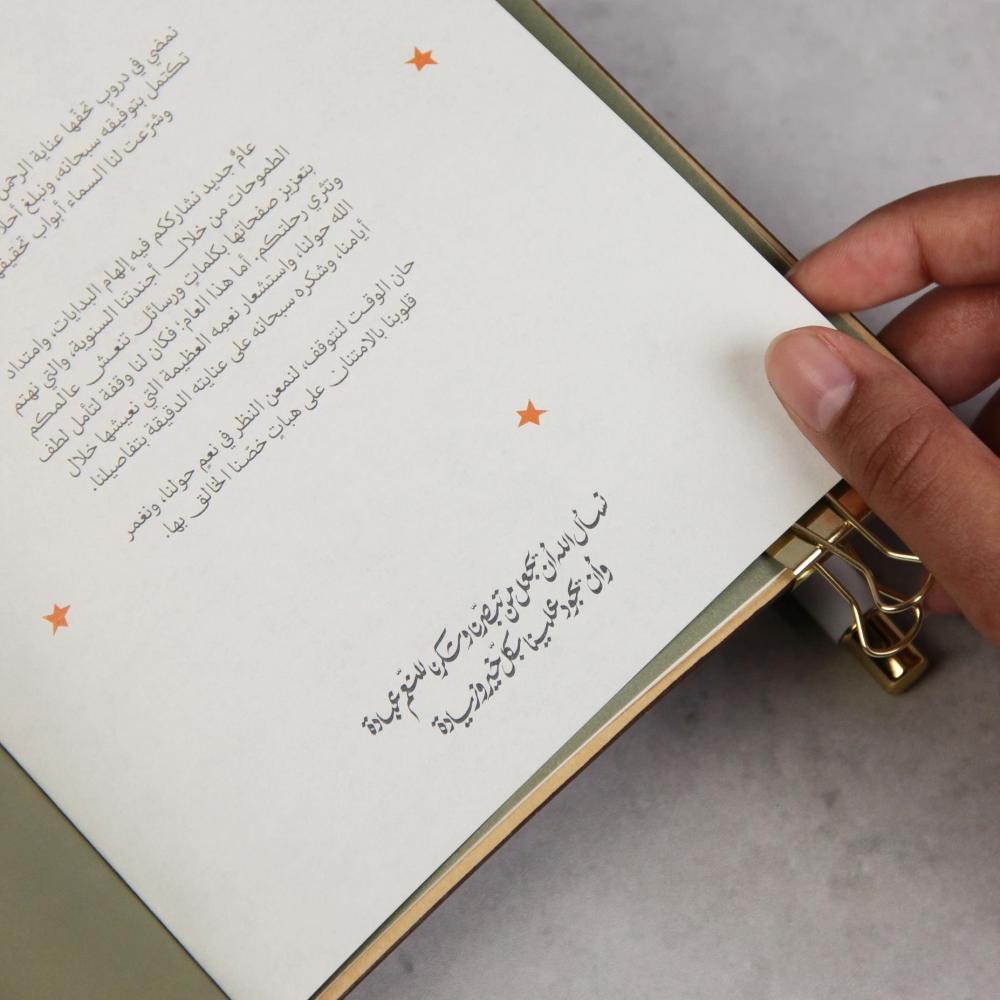 نمضي في دروبٍ تحفّها عناية الرحمن
تكتمل بتوفيقه سبحانه، ونبلغ
وشرّعت لنا السماء أبواب
عامٌ جديد نشارككم فيه إلهام البدايات، وامتداد
الطموحات من خلال أجندتنا السنوية، والتي نهتم
بتعزيز صفحاتها بكلماتٍ ورسائل تنعش عالمكم
وتثري رحلتكم. أما هذا العام؛ فكان لنا وقفة لتأمل لطف
الله حولنا، واستشعار نعمِه العظيمة التي نعيشها خلال
أيامنا، وشكره سبحانه على عنايته الدقيقة بتفاصيلنا.
حان الوقت لنتوقف، لنمعن النظر في نعمٍ حولنا، ونغمر
قلوبنا بالامتنان على هباتٍ خصّنا الخالق بها.
نسأل الله أن يجعل من تبصّرنا وشكرنا للنعّم عبادة
وأن يجود علينا بكل خيرٍ وزيادة